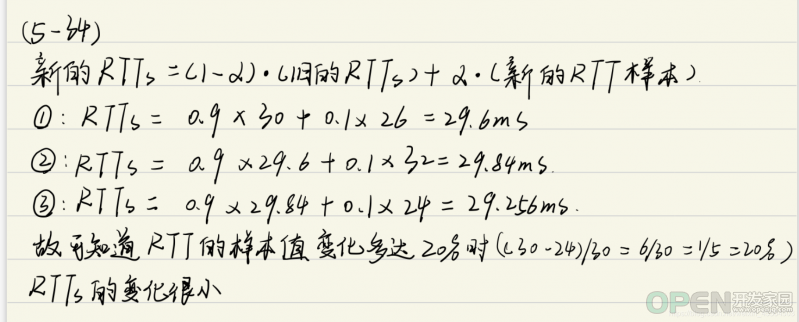 (5-34)
新的RTTs=(1-α)·(旧的RTTs)+α·(新的RTT样本)
①: RTTs = 0.9×30+0.1×26=29.6ms
②: RTTs = 0.9×29.6+0.1×32=29.84ms.
③: RTTs = 0.9×29.84+0.1×24=29.256ms.
故可知道RTT的样本值变化多达20%时((30-24)/30=6/30=1/5=20%)
RTTs的变化很小
OPEN开发家园